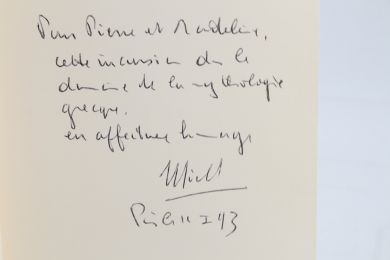 Pour Pierre et Madeleine,
cette incursion dans le
domaine de la mythologie
grecque.
en affectueux hommage